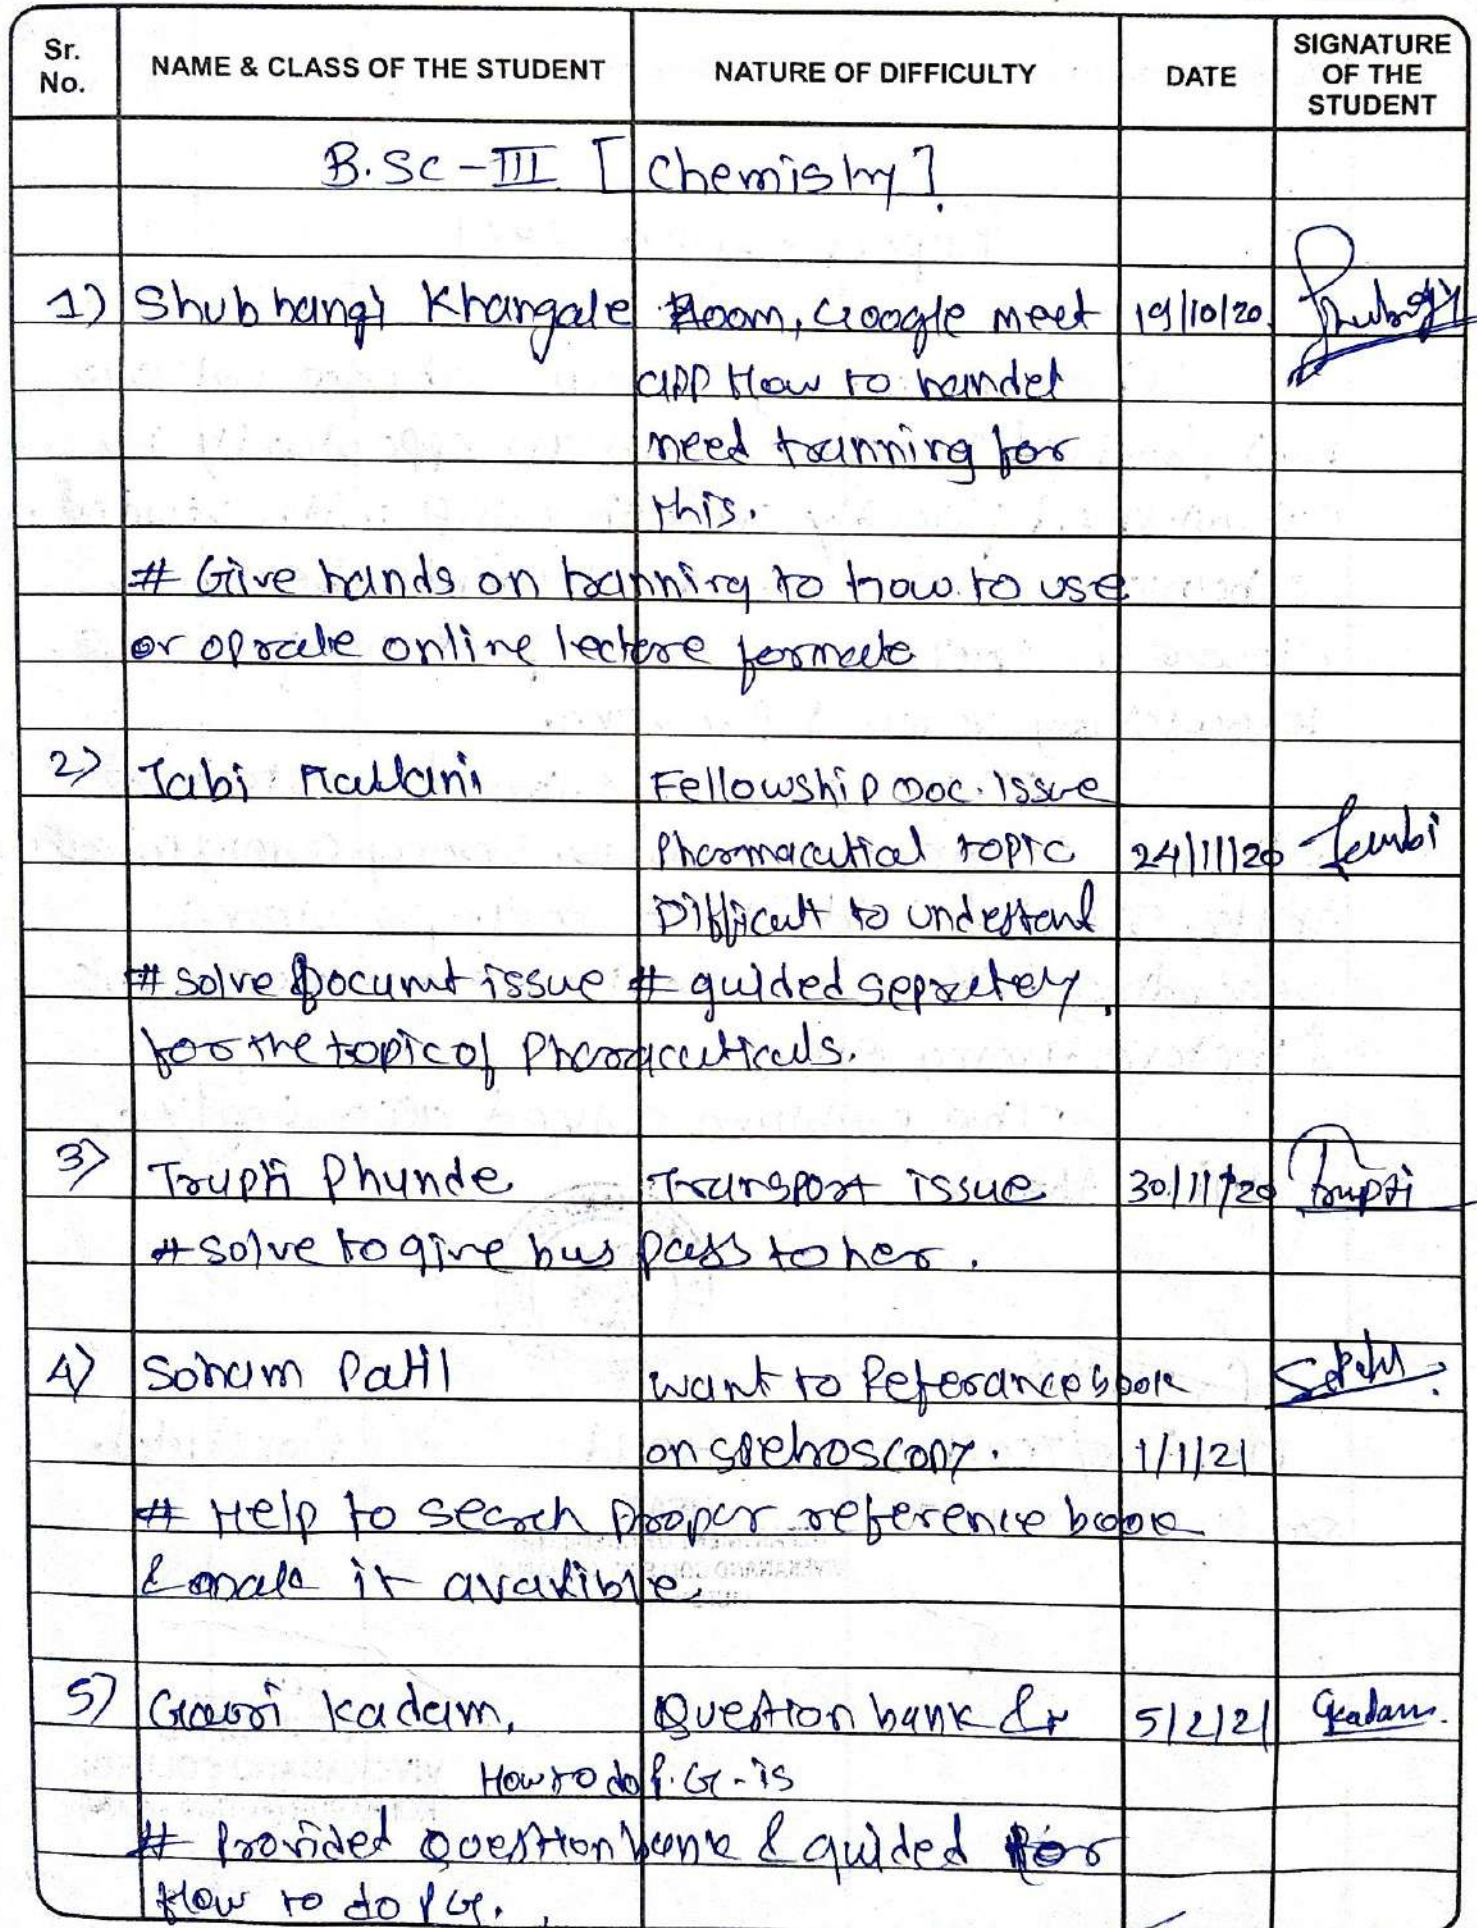 Sr. No.
NAME & CLASS OF THE STUDENT
NATURE OF DIFFICULTY
DATE
SIGNATURE OF THE STUDENT
B.Sc-III [Chemistry].
1) Shubhangi Khangale Zoom, Google meet 19/10/20
app How to handel
need tranning for
this.
# Give hands on tranning to how to use
or oprate online lecture formate
2) Fellowship Doc. Issue
Pharmacutical topic 24/11/20
Difficult to understand
# solve Documt issue # guided sepretely
for the topic of Pharmaceuticals.
3) Trupti Phunde Transport issue 30/11/20 Trupti
# solve to give bus pass to her.
4) Soham Patil want to Referance book
on spectroscopy. 1/1/21
# Help to search proper reference book
& make it avalible.
5) Gauri Kadam, Question bank & 5/2/21 Gkadam.
How to do P.G-is
# Provided Question bank & guided for
How to do PG.